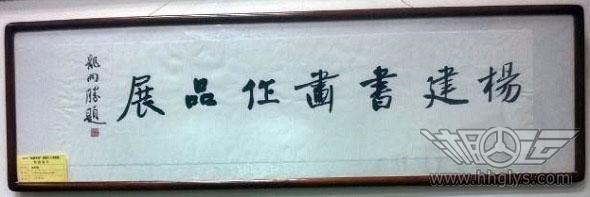 楊建書畫作品展
龍開勝題
湘运
www.hhglys.com